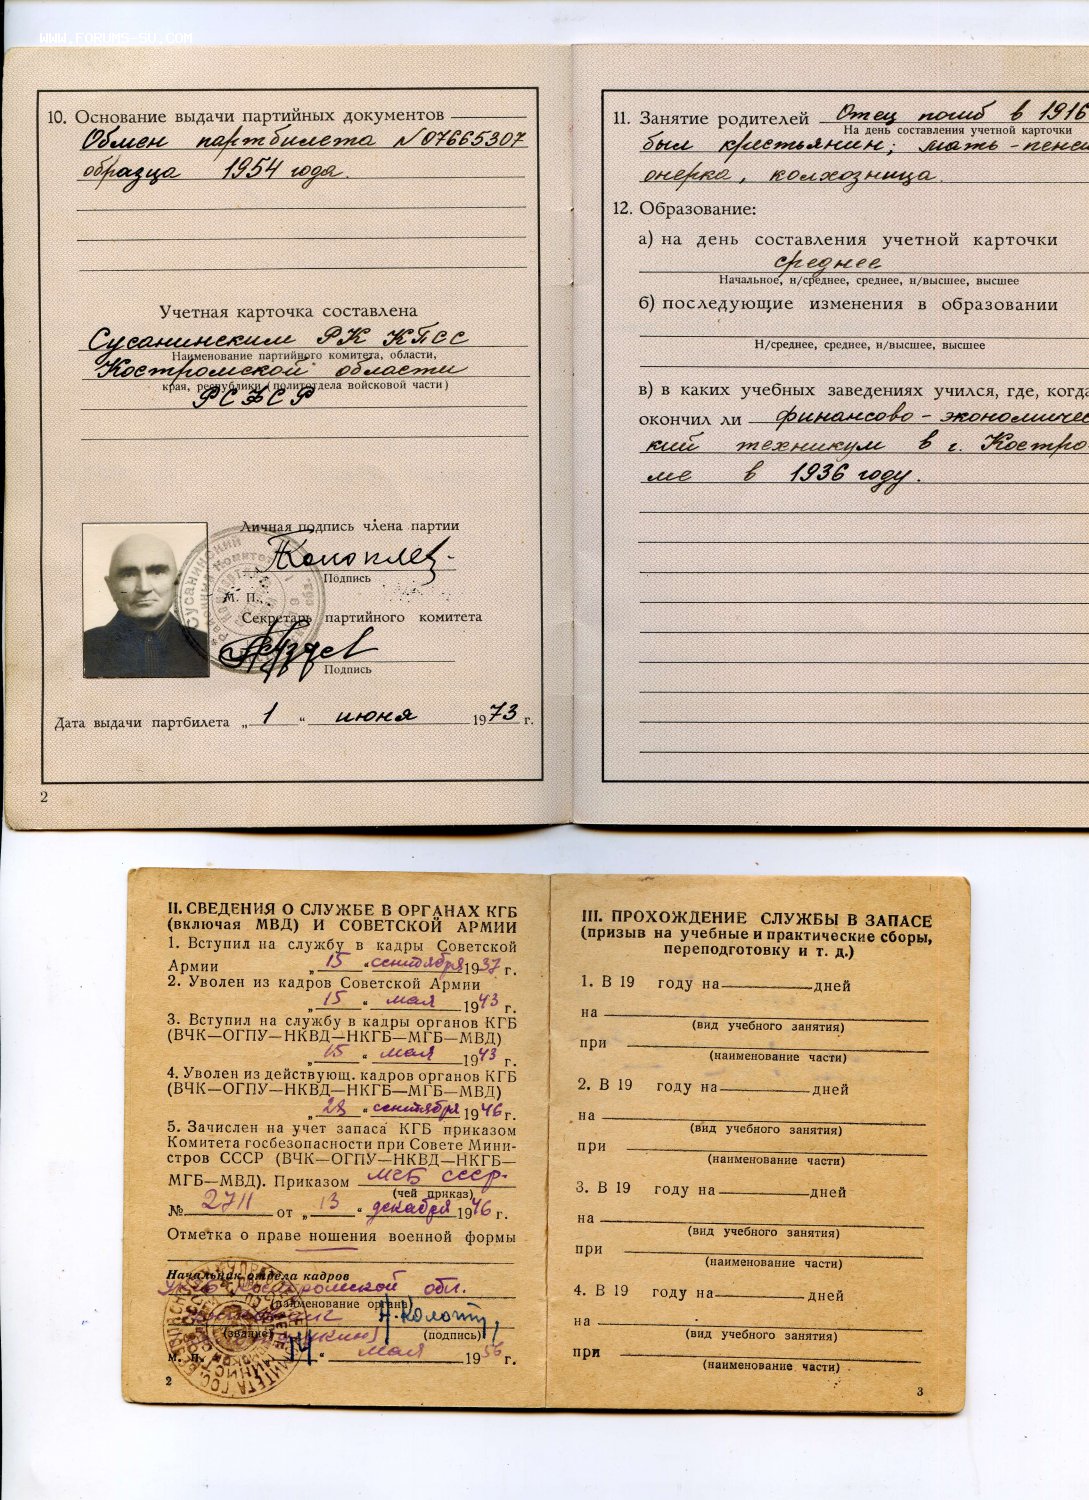 WWW.FORUMS-SU.COM
10. Основание выдачи партийных документов
Обмен партбилета №07665307
образца 1954 года.
Учетная карточка составлена
Сусанинским РК КПСС
Наименование партийного комитета, области,
Костромской области
края, республики (политотдела войсковой части)
РСФСР
Личная подпись члена партии
Подпись
М. П.
Секретарь партийного комитета
Подпись
Дата выдачи партбилета „ 1 “ июня 1973 г.
2
11. Занятие родителей Отец погиб в 1916
На день составления учетной карточки
был крестьянин; мать-пенси
онерка, колхозница.
12. Образование:
а) на день составления учетной карточки
среднее
Начальное, н/среднее, среднее, н/высшее, высшее
б) последующие изменения в образовании
Н/среднее, среднее, н/высшее, высшее
в) в каких учебных заведениях учился, где, когда
окончил ли финансово-экономичес
кий техникум в г. Костро-
ме в 1936 году.
II. СВЕДЕНИЯ О СЛУЖБЕ В ОРГАНАХ КГБ
(включая МВД) И СОВЕТСКОЙ АРМИИ
1. Вступил на службу в кадры Советской
Армии „ 15 “ сентября 1937 г.
2. Уволен из кадров Советской Армии
„ 15 “ мая 1943 г.
3. Вступил на службу в кадры органов КГБ
(ВЧК—ОГПУ—НКВД—НКГБ—МГБ—МВД)
„ 15 “ мая 1943 г.
4. Уволен из действующ. кадров органов КГБ
(ВЧК—ОГПУ—НКВД—НКГБ—МГБ—МВД)
„ 28 “ сентября 1946 г.
5. Зачислен на учет запаса КГБ приказом
Комитета госбезопасности при Совете Мини-
стров СССР (ВЧК—ОГПУ—НКВД—НКГБ—
МГБ—МВД). Приказом МГБ СССР
(чей приказ)
№ 2711 от „ 13 “ декабря 1946 г.
Отметка о праве ношения военной формы
Начальник отдела кадров
Костромской обл.
(наименование органа)
(звание) (подпись)
М. П. “ мая 1956 г.
2
III. ПРОХОЖДЕНИЕ СЛУЖБЫ В ЗАПАСЕ
(призыв на учебные и практические сборы,
переподготовку и т. д.)
1. В 19 году на дней
на
(вид учебного занятия)
при
(наименование части)
2. В 19 году на дней
на
(вид учебного занятия)
при
(наименование части)
3. В 19 году на дней
на
(вид учебного занятия)
при
(наименование части)
4. В 19 году на дней
на
(вид учебного занятия)
при
(наименование части)
3